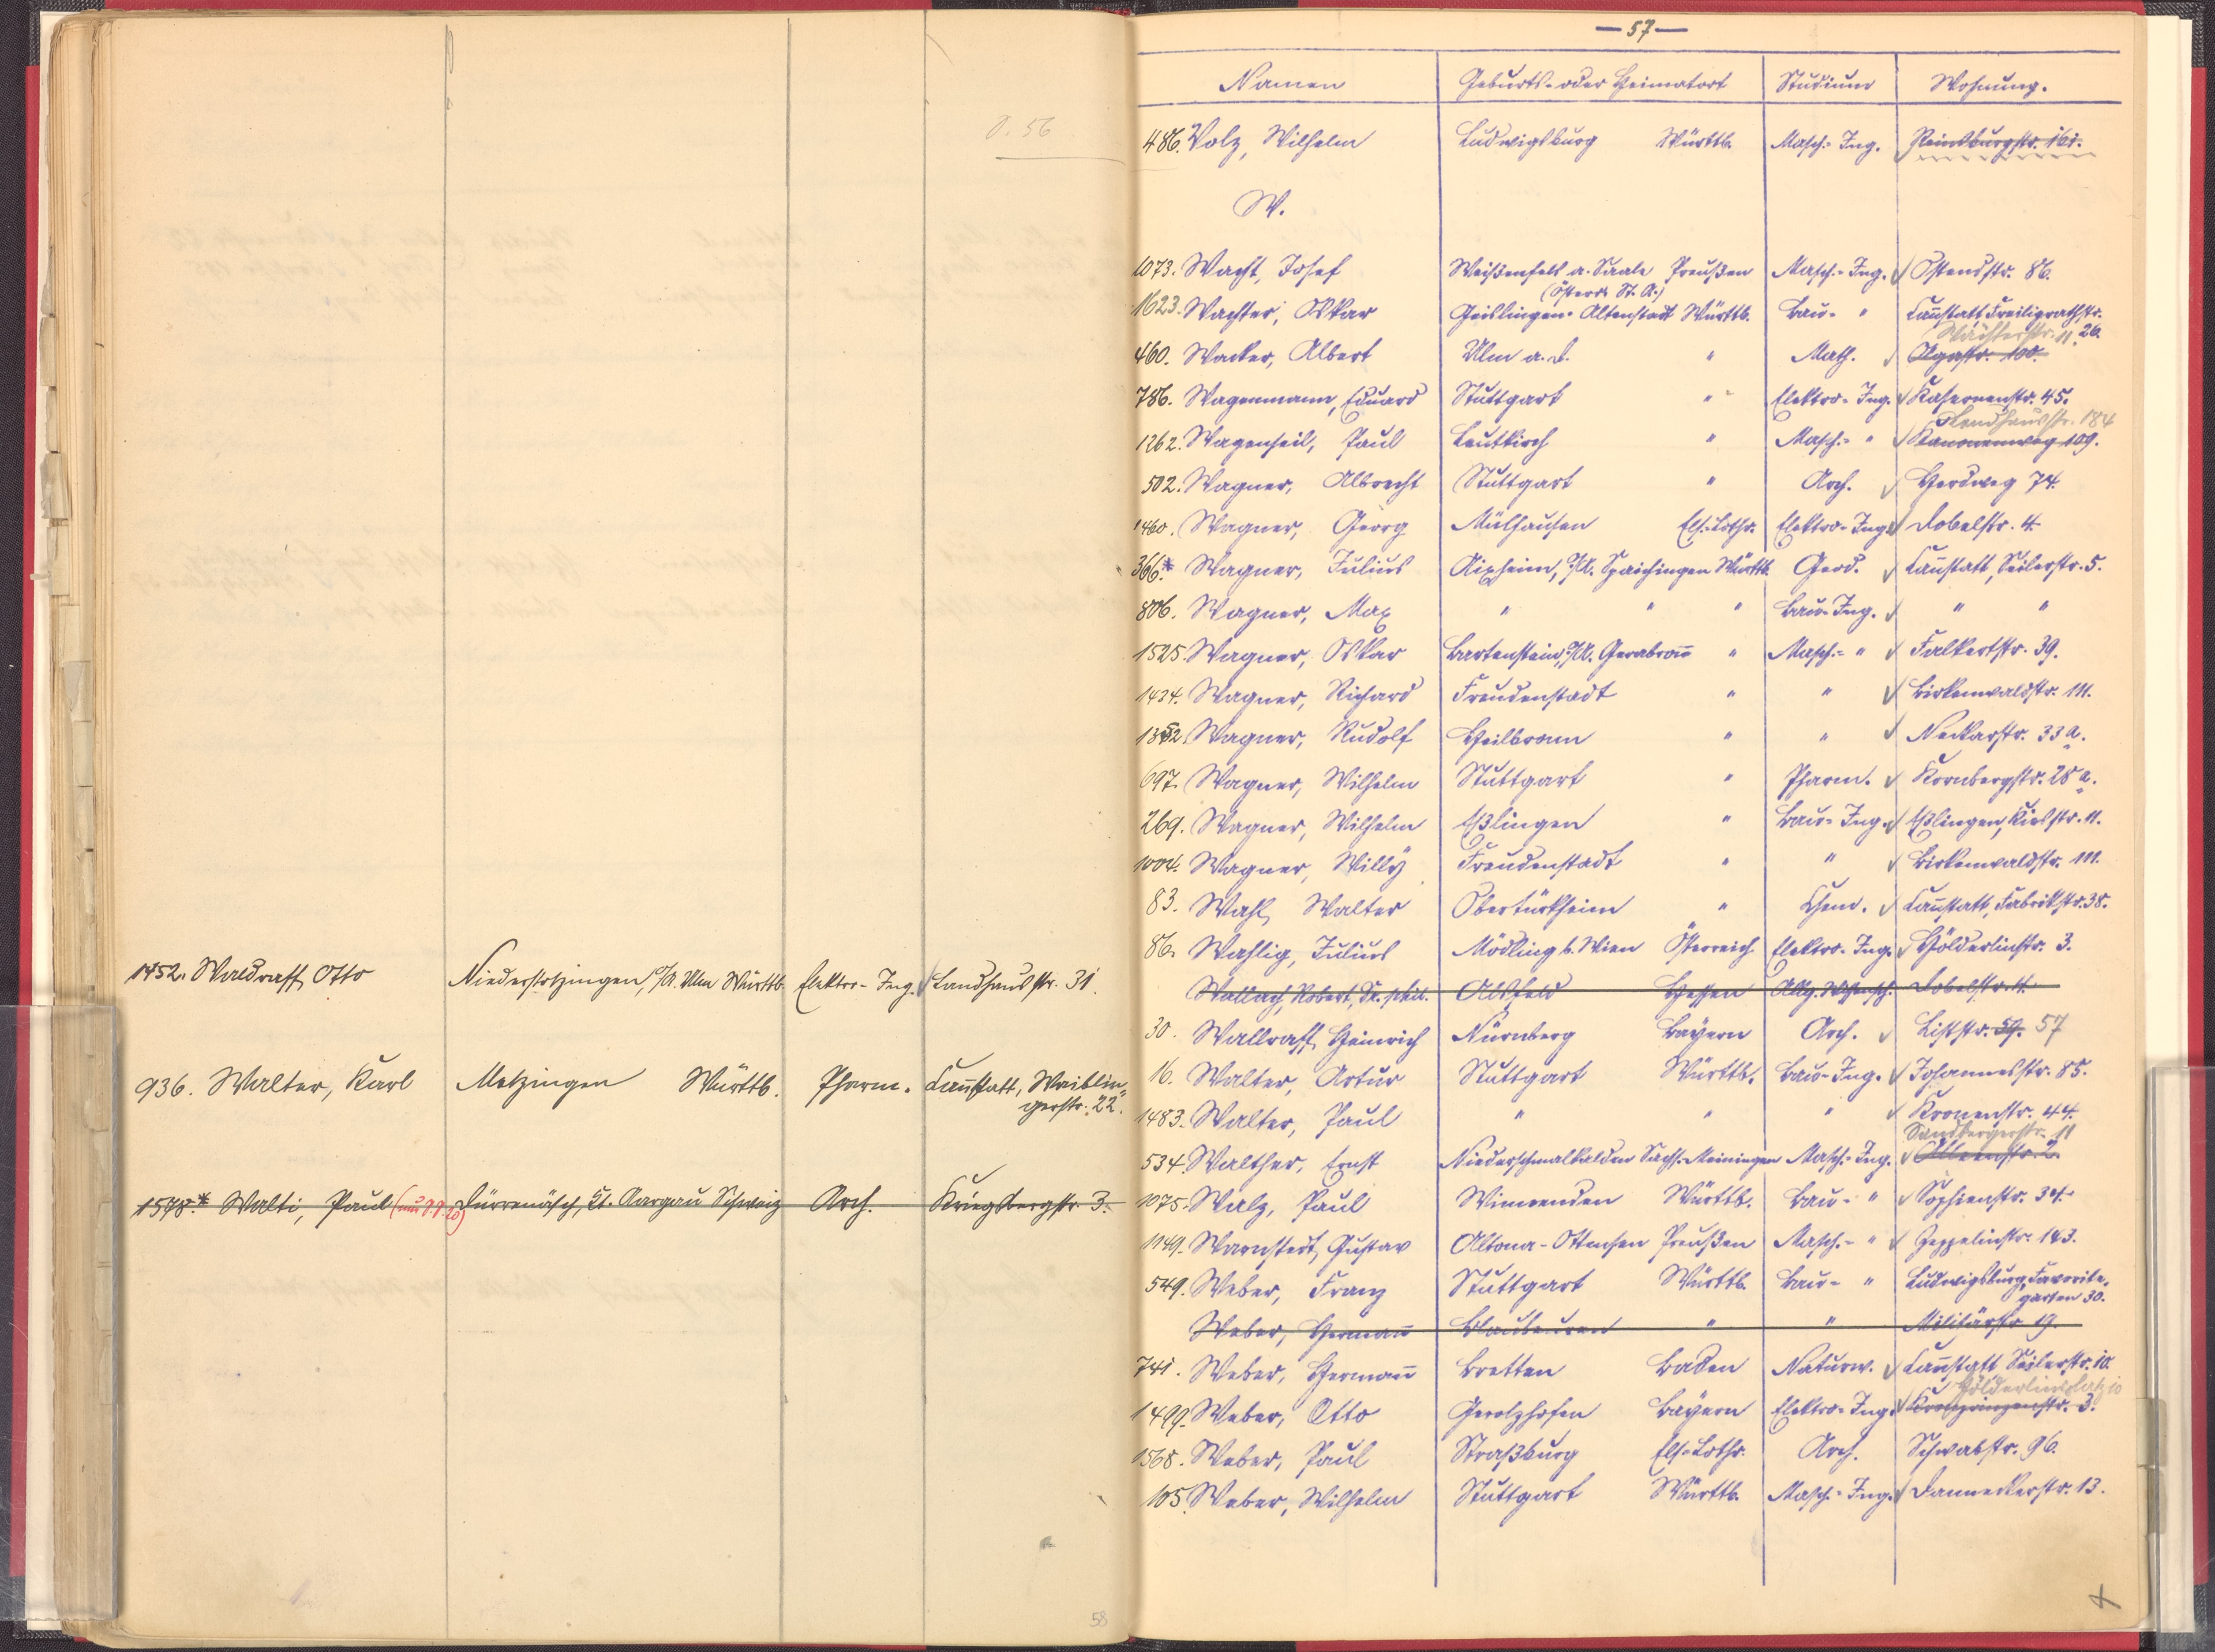 S. 56
1452. Waldraff, Otto Niederstotzingen, O/A. Ulm Württb. Elektro-Ing. Landhausstr. 31.
936. Walter, Karl Metzingen Württb. Pharm. Cannstatt, Waiblin-
gerstr. 22.
1578.* Walti, Paul Dürrenäsch, Kt. Aargau Schweiz Arch. Kriegsbergstr. 3.
58
— 57 —
Namen Geburts- oder Heimatort Studium Wohnung.
486. Volz, Wilhelm Ludwigsburg Württb. Masch.-Ing. Reinsburgstr. 161.
W.
1073. Wacht, Josef Weißenfels a. Saale Preußen Masch.-Ing. Ostendstr. 86.
(Österr. St. A.)
1623. Wachter, Oskar Geislingen-Altenstadt Württb. Bau- " Cannstatt, Freiligrathstr.
26.
Wächterstr. 11
460. Wacker, Albert Ulm a. D. " Math. Olgastr. 100.
786. Wagenmann, Eduard Stuttgart " Elektro-Ing. Kasernenstr. 45.
Landhausstr. 184
1262. Wagenseil, Paul Leutkirch " Masch.- " Kanonenweg 109.
502. Wagner, Albrecht Stuttgart " Arch. Herdweg 74.
1460. Wagner, Georg Mülhausen Els.-Lothr. Elektro-Ing. Dobelstr. 4.
366.* Wagner, Julius Aixheim, O/A. Spaichingen Württb. Geod. Cannstatt, Seilerstr. 5.
806. Wagner, Max " " " Bau-Ing. " "
1525. Wagner, Oskar Bartenstein, O/A. Gerabronn " Masch.- " Falkertstr. 39.
1434. Wagner, Richard Freudenstadt " " Birkenwaldstr. 111.
1352. Wagner, Rudolf Heilbronn " " Neckarstr. 33 a.
697. Wagner, Wilhelm Stuttgart " Pharm. Kornbergstr. 28 a.
269. Wagner, Wilhelm Eßlingen " Bau-Ing. Eßlingen, Kiesstr. 11.
1004. Wagner, Willy Freudenstadt " " Birkenwaldstr. 111.
83. Wahl, Walter Obertürkheim " Chem. Cannstatt, Fabrikstr. 38.
86. Wahlig, Julius Mödling b. Wien Österreich Elektro-Ing. Hölderlinstr. 3.
Wallach, Robert, Dr. phil. Alsfeld Hessen Allg. Wissensch. Dobelstr. 4.
30. Wallraff, Heinrich Nürnberg Bayern Arch. Listst. 59. 57
16. Walter, Artur Stuttgart Württb. Bau-Ing. Johannesstr. 85.
1483. Walter, Paul " " " Kronenstr. 44.
Sandbergerstr. 11
534. Walther, Ernst Niederschmalkalden Sachs. Meiningen Masch.-Ing.
1075. Walz, Paul Winnenden Württb. Bau- " Sophienstr. 34.
1149. Warnstedt, Gustav Altona-Ottensen Preußen Masch.- " Zeppelinstr. 143.
549. Weber, Franz Stuttgart Württb. Bau- " Ludwigsburg, Favorite-
garten 30.
Weber, Hermann Blaubeuren " " Militärstr. 19.
741. Weber, Hermann Bretten Baden Naturw. Cannstatt Seilerstr. 10.
Hölderlinplatz 10
1499. Weber, Otto Gerolzhofen Bayern Elektro-Ing. Kronprinzenstr. 3.
1568. Weber, Paul Straßburg Els.-Lothr. Arch. Schwabstr. 96.
105. Weber, Wilhelm Stuttgart Württb. Masch.-Ing. Danneckerstr. 13.